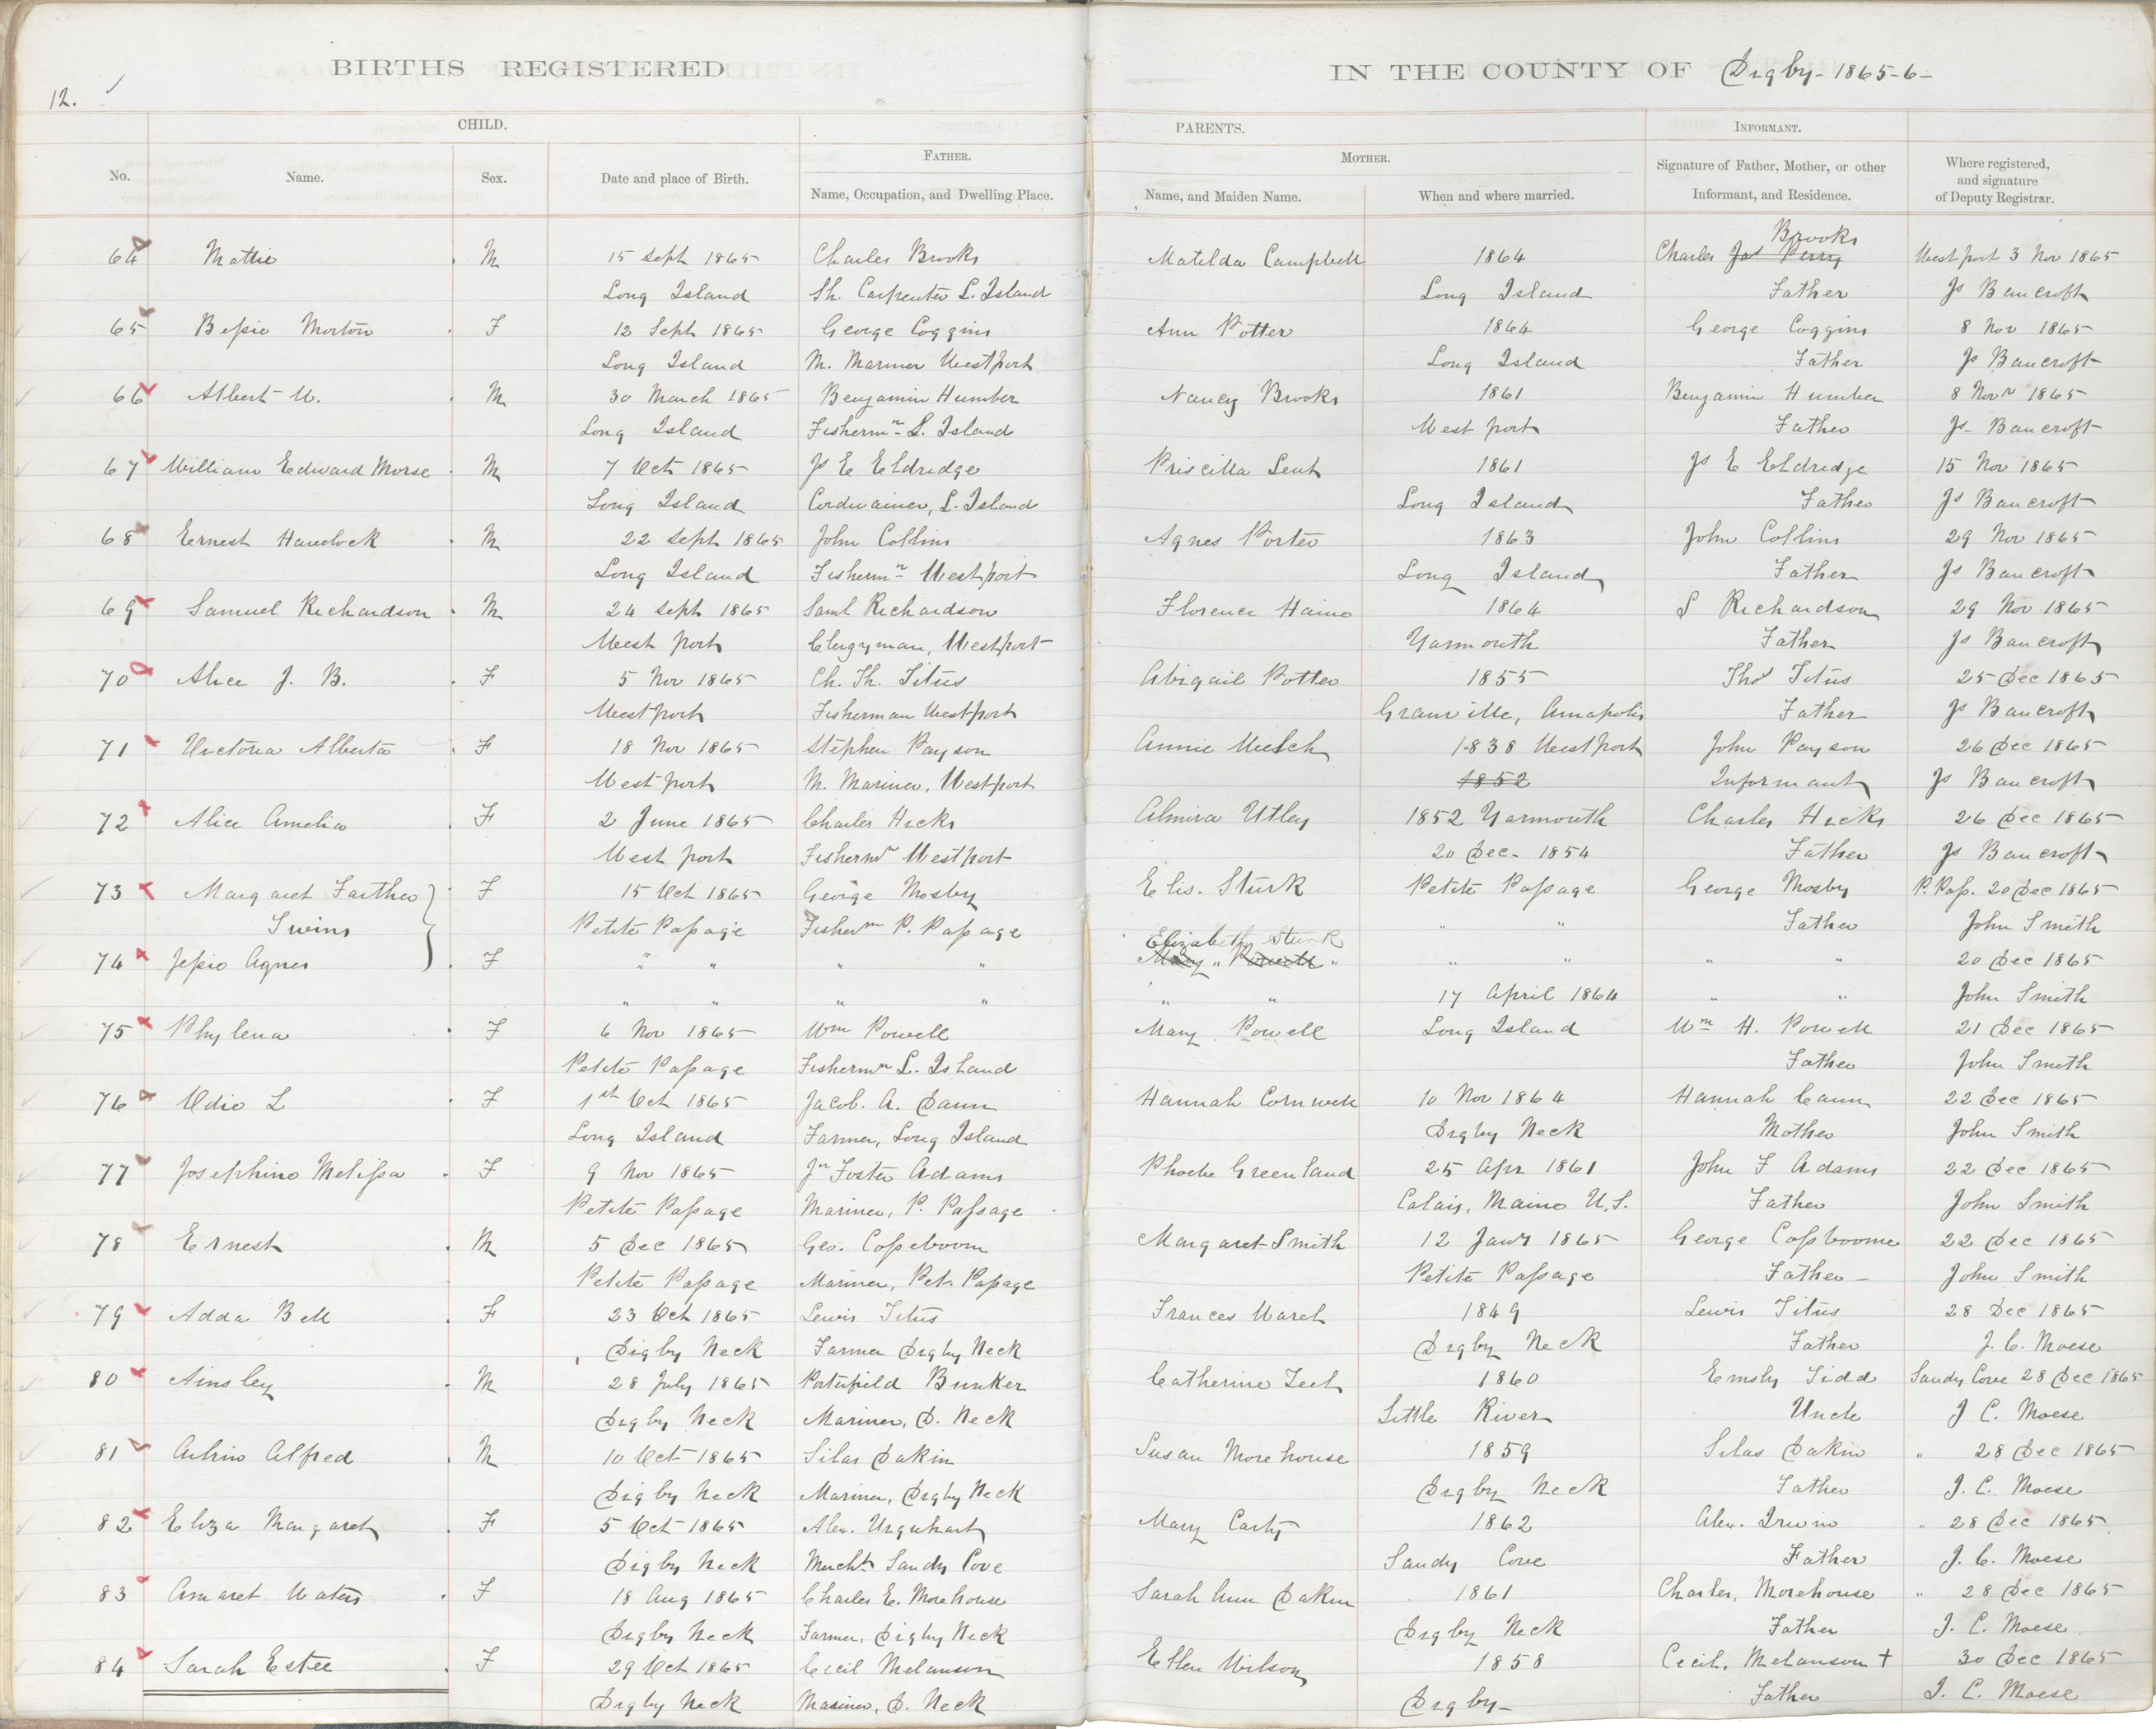 BIRTHS REGISTERED IN THE COUNTY OF Digby - 1865-6 -
12.
CHILD. PARENTS. INFORMANT.
No. Name. Sex. Date and place of Birth. FATHER. Name, Occupation, and Dwelling Place. MOTHER. Name, and Maiden Name. When and where married. Signature of Father, Mother, or other Informant, and Residence. Where registered, and signature of Deputy Registrar.
Brooks
64 Mattie M 15 Sept 1865 Charles Brooks Matilda Campbell 1864 Charles Jas Perry Westport 3 Nov 1865
Long Island Sh. Carpenter L. Island Long Island Father Js Bancroft
65 Bessie Morton F 12 Sept 1865 George Coggins Ann Potter 1864 George Coggins 8 Nov 1865
Long Island M. Mariner Westport Long Island Father Js Bancroft
66 Albert W. M 30 March 1865 Benjamin Humber Nancy Brooks 1861 Benjamin Humber 8 Novr 1865
Long Island Fishermn L. Island Westport Father Js Bancroft
67 William Edward Morse M 7 Oct 1865 Js E Eldridge Priscilla Lent 1861 Js E Eldridge 15 Nov 1865
Long Island Cordwainer, L. Island Long Island Father Js Bancroft
68 Ernest Havelock M 22 Sept 1865 John Collins Agnes Porter 1863 John Collins 29 Nov 1865
Long Island Fishermn Westport Long Island Father Js Bancroft
69 Samuel Richardson M 24 Sept 1865 Saml Richardson Florence Haino 1864 S Richardson 29 Nov 1865
West port Clergyman, Westport Yarmouth Father Js Bancroft
70 Alice J. B. F 5 Nov 1865 Ch. Th. Titus Abigail Potter 1855 Thos Titus 25 Dec 1865
Westport Fisherman Westport Granville, Annapolis Father Js Bancroft
71 Victoria Alberta F 18 Nov 1865 Stephen Payson Annie Welch 1838 Westport John Payson 26 Dec 1865
West port M. Mariner, Westport 1852 Informant Js Bancroft
72 Alice Amelia F 2 June 1865 Charles Hicks Almira Utley 1852 Yarmouth Charles Hicks 26 Dec 1865
West port Fishermn Westport 20 Dec. 1854 Father Js Bancroft
73 Margaret Farther F 15 Oct 1865 George Mosby Elis. Sturk Petite Passage George Mosby P. Pass. 20 Dec 1865
Twins Petite Passage Fishermn P. Passage " " Father John Smith
Elizabeth Sturk
74 Jessie Agnes F " " " " Mary " Powell " " " " " 20 Dec 1865
" " " " " " 17 April 1864 " " John Smith
75 Phylena F 6 Nov 1865 Wm Powell Mary Powell Long Island Wm H. Powell 21 Dec 1865
Petite Passage Fishermn L. Island Father John Smith
76 Odio L F 1st Oct 1865 Jacob. A. Dann Hannah Cornwell 10 Nov 1864 Hannah Cann 22 Dec 1865
Long Island Farmer, Long Island Digby Neck Mother John Smith
77 Josephine Melissa F 9 Nov 1865 Jn Foster Adams Phoebe Greenland 25 Apr 1861 John F Adams 22 Dec 1865
Petite Passage Mariner, P. Passage Calais, Maine U.S. Father John Smith
78 Ernest M 5 Dec 1865 Geo. Cossboom Margaret Smith 12 Jany 1865 George Cossboome 22 Dec 1865
Petite Passage Mariner, Pet. Passage Petite Passage Father - John Smith
79 Adda Bell F 23 Oct 1865 Lewis Titus Frances Marsh 1849 Lewis Titus 28 Dec 1865
Digby Neck Farmer Digby Neck Digby Neck Father J. C. Morse
80 Ainsley M 28 July 1865 Porterfield Bunker Catherine 1860 Emsly Tidd Sandy Cove 28 Dec 1865
Digby Neck Mariner, D. Neck Little River Uncle J C. Morse
81 Alfred M 10 Oct 1865 Silas Dakin Susan Morehouse 1859 Silas Dakin " 28 Dec 1865
Digby Neck Mariner, Digby Neck Digby Neck Father J. C. Morse
82 Eliza Margaret F 5 Oct 1865 Alex. Urquhart Mary Carty 1862 Alex. Irwin " 28 Dec 1865
Digby Neck Mercht Sandy Cove Sandy Cove Father J. C. Morse
83 Amaret Waters F 18 Aug 1865 Charles E. Morehouse Sarah Ann Dakin 1861 Charles, Morehouse " 28 Dec 1865
Digby Neck Farmer, Digby Neck Digby Neck Father J. C. Morse
84 Sarah Estee F 29 Oct 1865 Cecil Melanson Ellen Wilson 1858 Cecil. Melanson + 30 Dec 1865
Digby Neck Mariner, D. Neck Digby - Father J. C. Morse